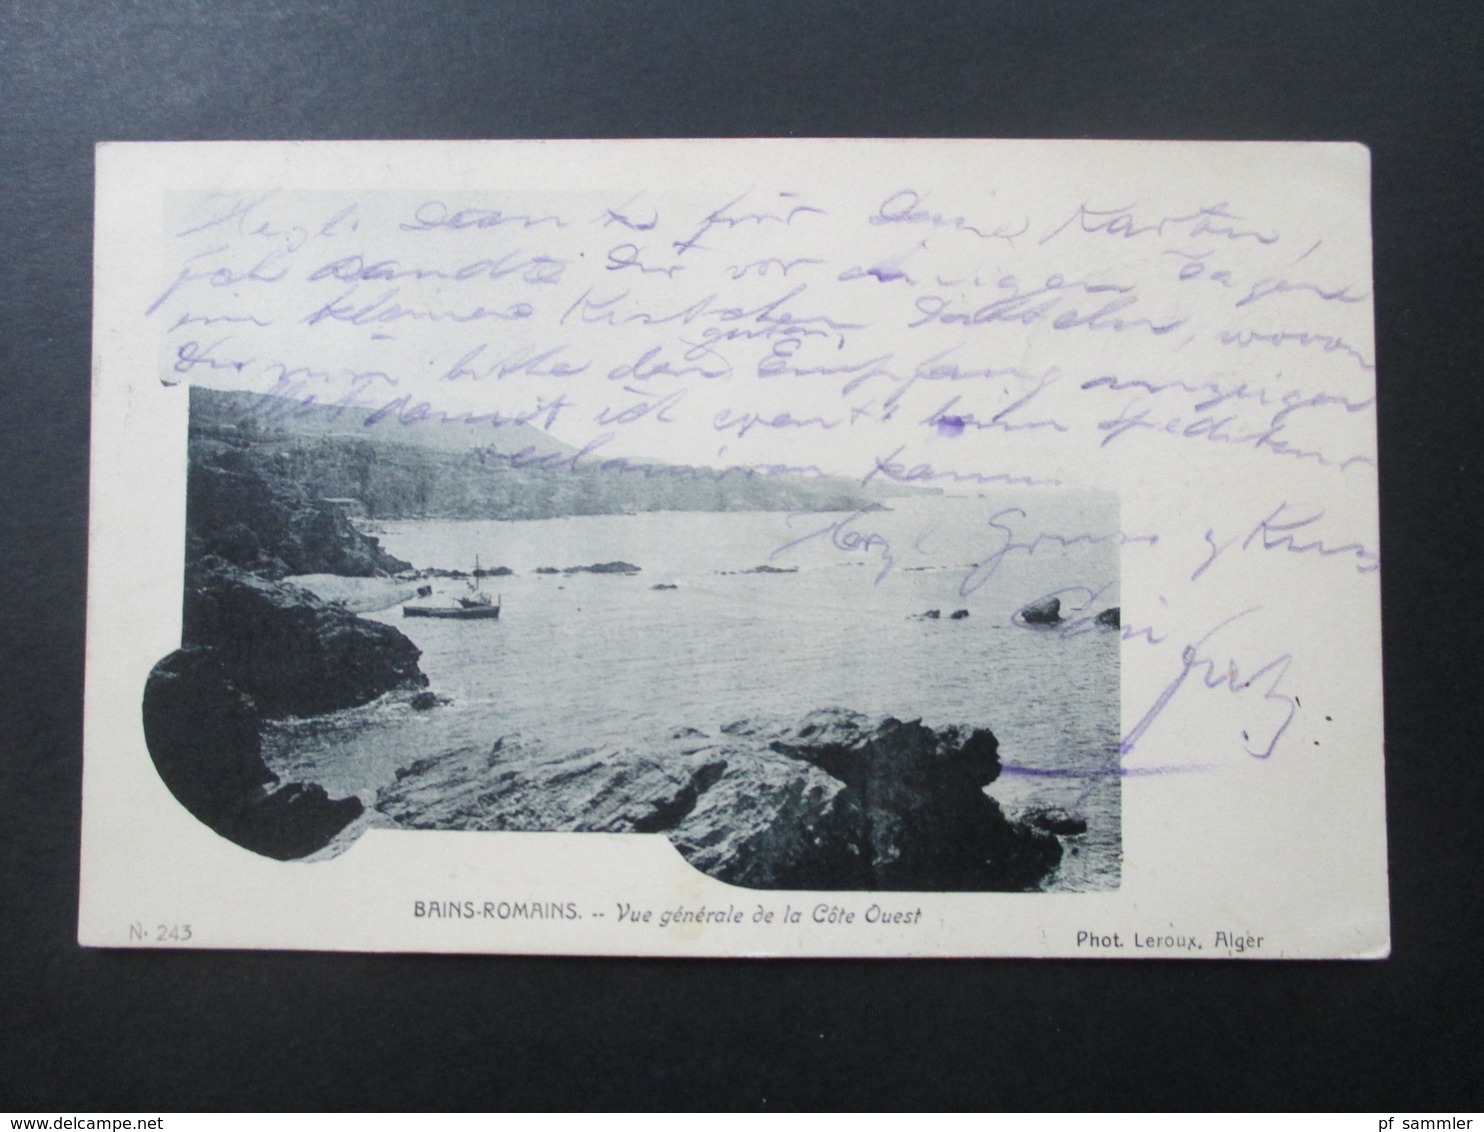 Herzl. Dank für Deine Karten,
Ich sandte Dir vor einigen Tagen
ein kleines Kistchen Datteln, wovon
Du mir bitte den guten Empfang anzeigen
damit ich event. beim Spediteur
reclamiren kann.
Herzl Gruss & Kuss
Dein
BAINS-ROMAINS. -- Vue générale de la Côte Ouest
N. 243
Phot. Leroux, Alger
www.delcampe.net
pf_sammler